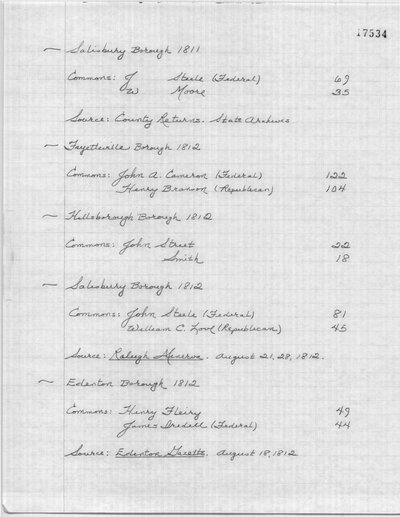 17534
~ Salisbury Borough 1811
Commons: J Steele (Federal) 69
W Moore 35
Source: County Returns. State Archives
~ Fayetteville Borough 1812
Commons: John A. Cameron (Federal) 122
Henry Branson (Republican) 104
~ Hillsborough Borough 1812
Commons: John Street 22
Smith 18
~ Salisbury Borough 1812
Commons: John Steele (Federal) 81
William C. Love (Republican) 45
Source: Raleigh Minerva. August 21, 28, 1812.
~ Edenton Borough 1812
Commons: Henry Fleury 49
James Iredell (Federal) 44
Source: Edenton Gazette. August 18, 1812